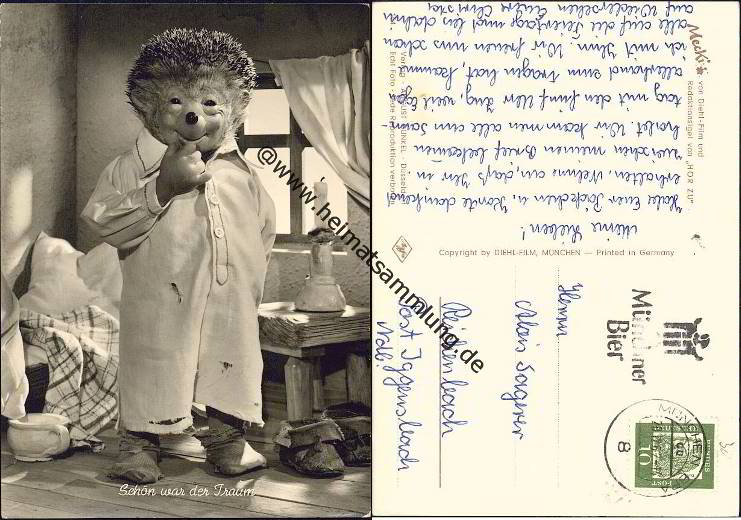 Schön war der Traum
@www.heimatsammlung.de
Meine Lieben!
Habe Euer Päckchen u. Karte dankend
erhalten. Nehme an, daß Ihr in-
zwischen meinen Brief bekommen
habet. Wir kommen alle am Sams-
tag mit den fünf Uhr Zug, weil Egon
allerhand zum tragen hat, komme
ich mit Ihm. Wir freuen uns schon
alle auf die Feiertage und bis dahin
auf Wiedersehen Eure Christa
Mecki
von Diehl-Film und
Redaktionsigel von „HÖR ZU"
Echt Foto
Copyright by DIEHL-FILM, MÜNCHEN — Printed in Germany
Herrn
Alois
Reichenbach
Post Iggensbach
Ndb.
Münchner
Bier
MÜNCHEN
8
10
DEUTSCHE
BUNDES
POST